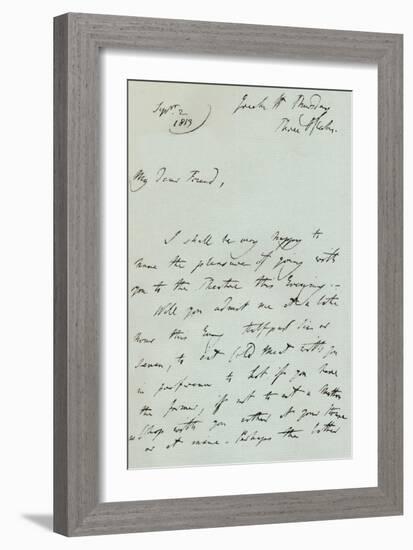 Septr. 2
1813
Thursday
Three O'Clock.
My Dear Friend,
I shall be very happy to
have the pleasure of going with
you to the Theatre this Evening.-
Will you admit me at a late
hour this Eveng half past Six or
Seven, to eat Cold Meat with you
in preference to hot if you have
the former, if not to eat a Mutton
Chop with you either at your House
or at mine - Perhaps the latter